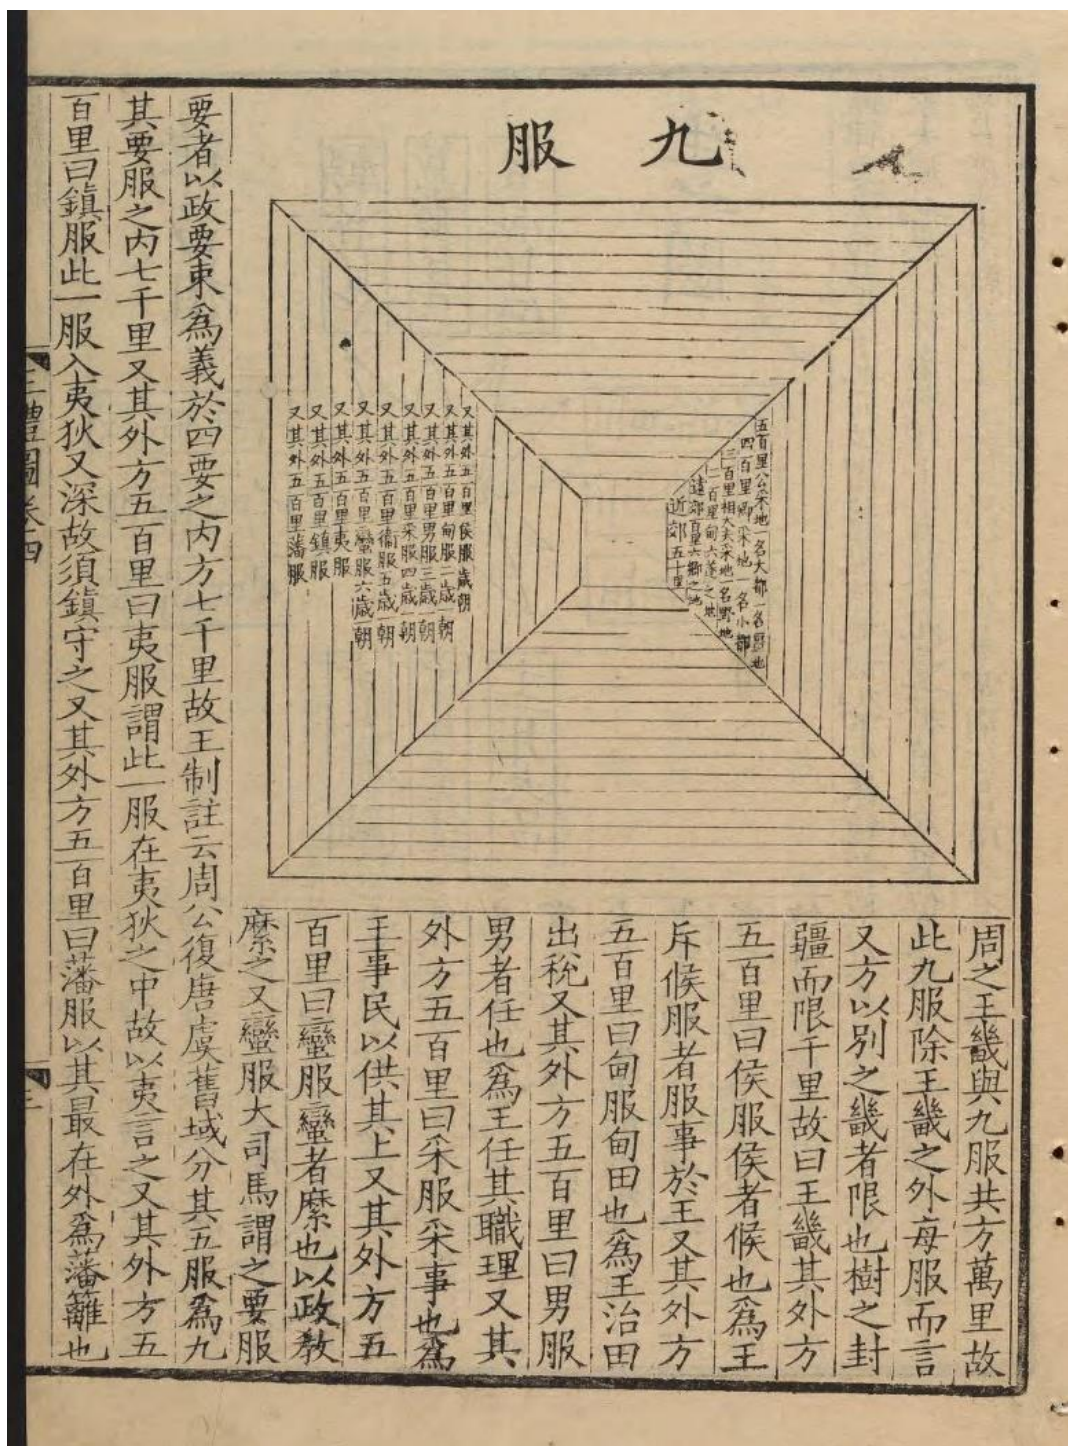 九服
五百里公采地一名大都一名畺地
四百里卿采地一名小都
三百里相大夫采地一名野地
二百里甸六遂之地
遠郊百里六鄉之地
近郊五十里
又其外五百里侯服歲朝
又其外五百里甸服二歲一朝
又其外五百里男服三歲一朝
又其外五百里采服四歲一朝
又其外五百里衞服五歲一朝
又其外五百里蠻服六歲一朝
又其外五百里夷服
又其外五百里鎮服
又其外五百里藩服
周之王畿與九服共方萬里故
此九服除王畿之外每服而言
又方以別之畿者限也樹之封
疆而限千里故曰王畿其外方
五百里曰侯服侯者候也爲王
斥候服者服事於王又其外方
五百里曰甸服甸田也爲王治田
出稅又其外方五百里曰男服
男者任也爲王任其職理又其
外方五百里曰采服采事也爲
王事民以供其上又其外方五
百里曰蠻服蠻者縻也以政教
縻之又蠻服大司馬謂之要服
要者以政要束爲義於四要之内方七千里故王制註云周公復唐虞舊域分其五服爲九
其要服之内七千里又其外方五百里曰夷服謂此一服在夷狄之中故以夷言之又其外方五
百里曰鎮服此一服入夷狄又深故須鎮守之又其外方五百里曰藩服以其最在外爲藩籬也
三禮圖卷四
三